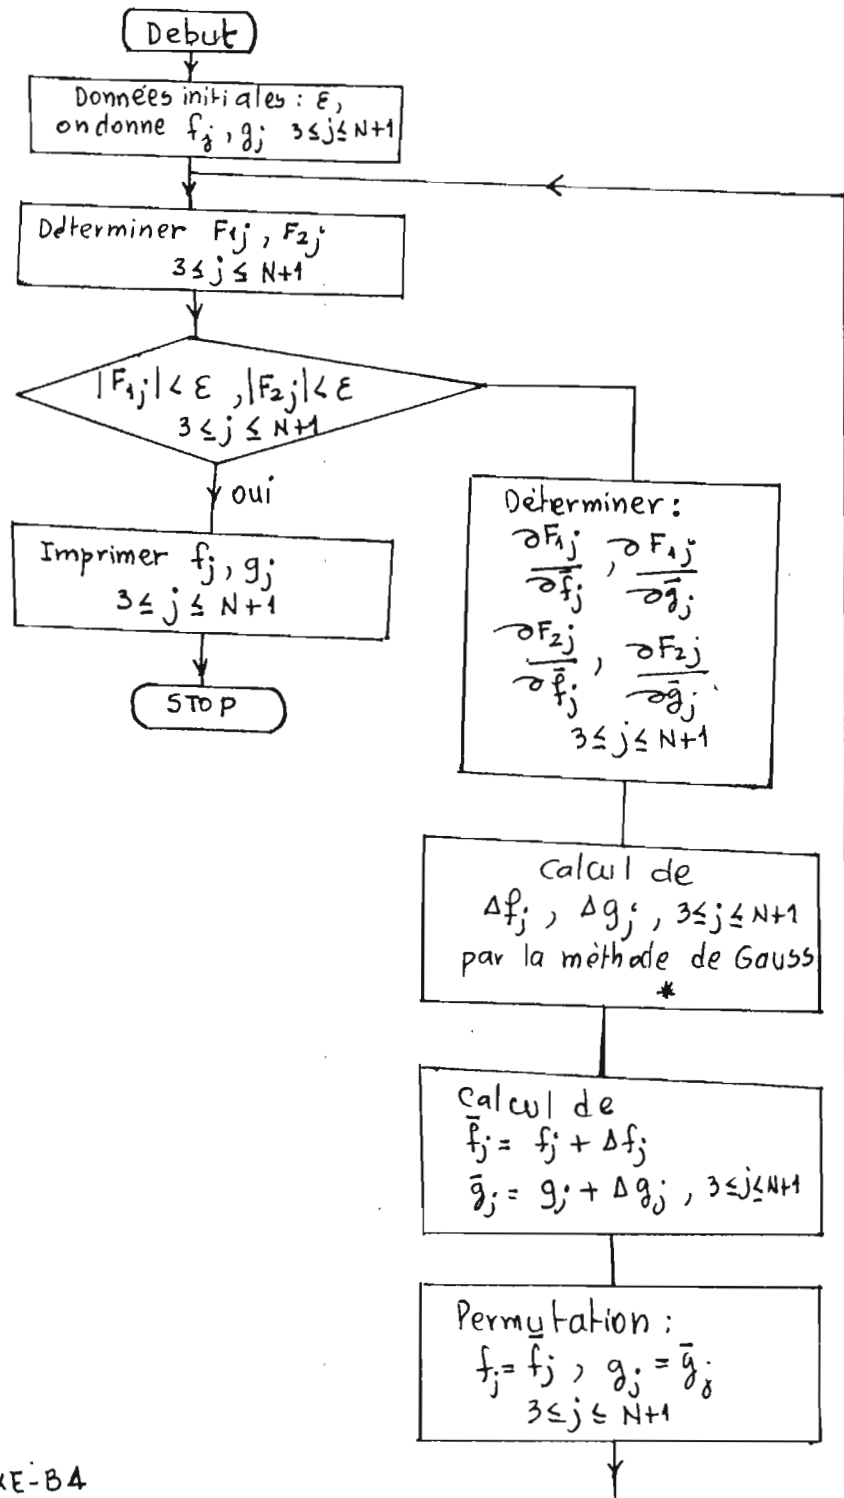 Debut
Données initiales : ε,
on donne fj, gj 3≤j≤N+1
Déterminer F1j, F2j
3≤j≤N+1
|F1j| < ε, |F2j| < ε
3≤j≤N+1
oui
Imprimer fj, gj
3≤j≤N+1
STOP
Déterminer :
∂F1j/∂f̄j, ∂F1j/∂ḡj
∂F2j/∂f̄j, ∂F2j/∂ḡj
3≤j≤N+1
Calcul de
Δfj, Δgj, 3≤j≤N+1
par la méthode de Gauss
*
Calcul de
f̄j = fj + Δfj
ḡj = gj + Δgj, 3≤j≤N+1
Permutation :
fj = f̄j, gj = ḡj
3≤j≤N+1
XE-B4